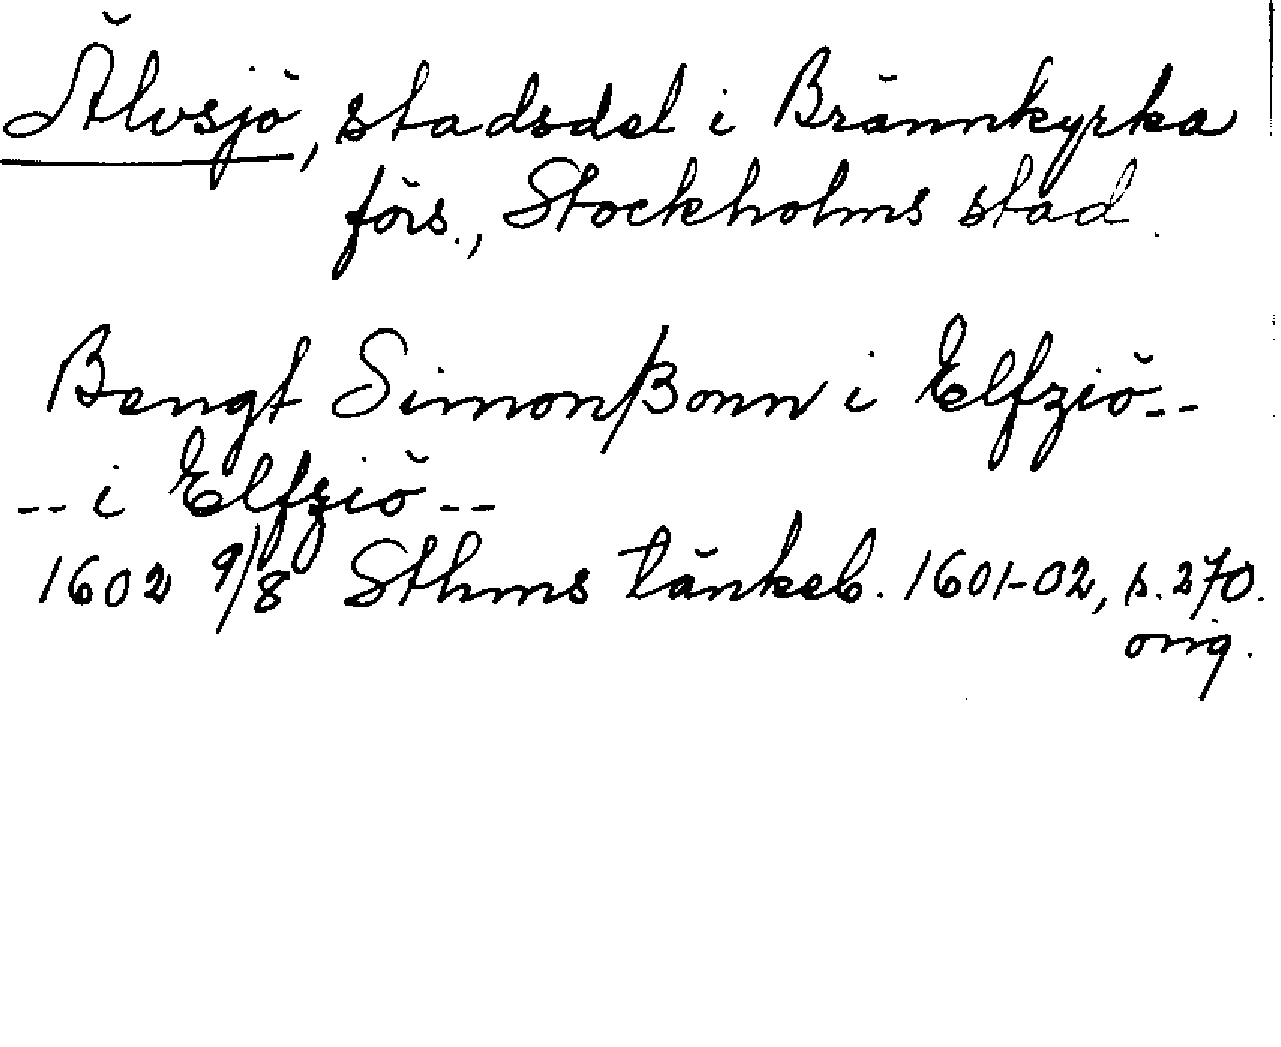 Älvsjö, stadsdel i Brännkyrka
förs., Stockholms stad.
Bengt Simonßonn i Elfziö--
-- i Elfziö --
1602 9/8 Sthms tänkeb. 1601-02, s. 270.
orig.